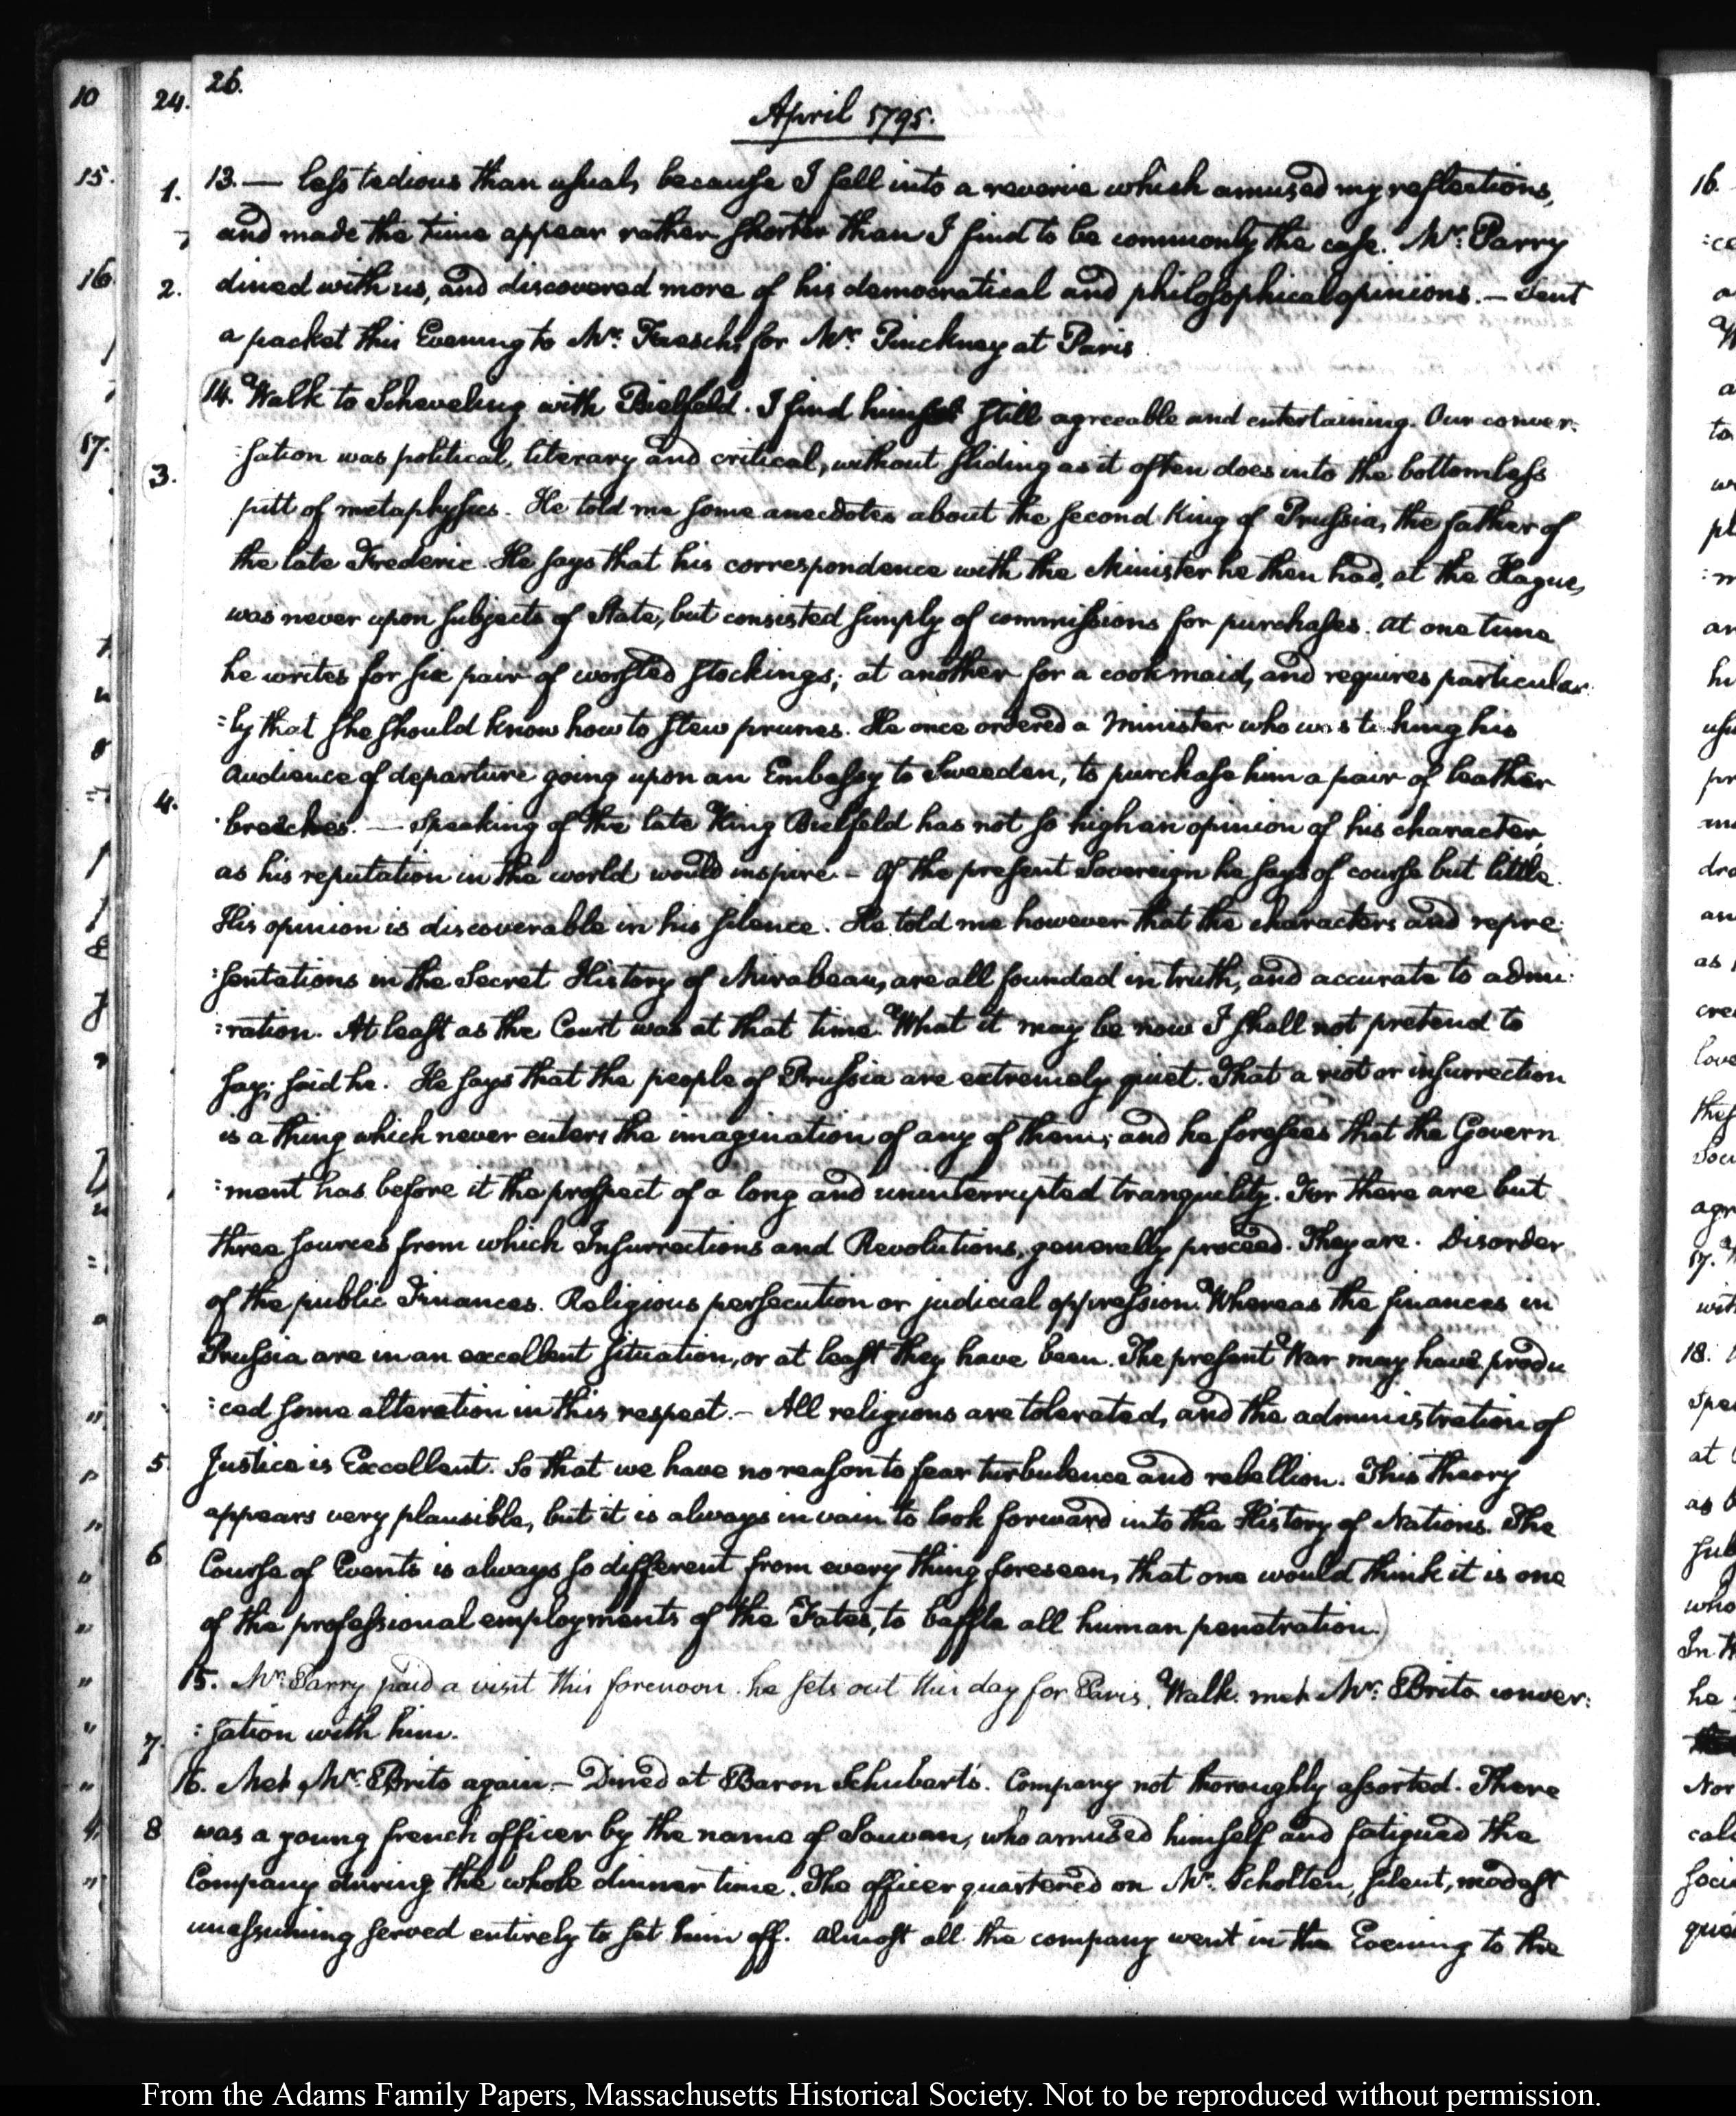 26.
April 1795.
13. — less tedious than usual, because I fell into a reverie which amused my reflections,
and made the time appear rather shorter than I find to be commonly the case. Mr: Parry
dined with us, and discovered more of his democratical and philosophical opinions. — Sent
a packet this Evening to Mr: Faesch, for Mr: Pinckney at Paris
14. Walk to Scheveling with Bielfeld. I find him still agreeable and entertaining. Our conver:
:sation was political, literary and critical, without sliding as it often does into the bottomless
pitt of metaphysics. He told me some anecdotes about the second King of Prussia, the father of
the late Frederic. He says that his correspondence with the Minister he then had, at the Hague,
was never upon subjects of State, but consisted simply of commissions for purchases. At one time
he writes for six pair of worsted stockings; at another for a cookmaid, and requires particular:
:ly that she should know how to stew prunes. He once ordered a Minister who was taking his
Audience of departure going upon an Embassy to Sweeden, to purchase him a pair of leather
breeches. — Speaking of the late King Bielfeld has not so high an opinion of his character,
as his reputation in the world would inspire — Of the present Sovereign he says of course but little.
His opinion is discoverable in his silence. He told me however that the characters and repre:
:sentations in the Secret History of Mirabeau, are all founded in truth, and accurate to admi:
:ration. At least as the Court was at that time. What it may be now I shall not pretend to
say; said he. He says that the people of Prussia are extremely quiet. That a riot or insurrection
is a thing which never enters the imagination of any of them; and he foresees that the Govern
:ment has before it the prospect of a long and uninterrupted tranquility. For there are but
three sources from which Insurrections and Revolutions, generally proceed. They are. Disorder
of the public Finances. Religious persecution or judicial oppression. Whereas the finances in
Prussia are in an excellent situation, or at least they have been. The present War may have produ
:ced some alteration in this respect. — All religions are tolerated, and the administration of
Justice is Excellent. So that we have no reason to fear turbulence and rebellion. This theory
appears very plausible, but it is always in vain to look forward into the History of Nations. The
Course of Events is always so different from every thing foreseen, that one would think it is one
of the professional employments of the Fates, to baffle all human penetration.
15. Mr: Parry paid a visit this forenoon. he sets out this day for Paris. Walk. met Mr: Brito conver:
:sation with him.
16. Met Mr: Brito again. — Dined at Baron Schubart's. Company not thoroughly assorted. There
was a young french officer by the name of Souvan, who amused himself and fatigued the
Company during the whole dinner time. The officer quartered on Mr: Scholten, silent, modest
unassuming served entirely to set him off. Almost all the company went in the Evening to the
From the Adams Family Papers, Massachusetts Historical Society. Not to be reproduced without permission.